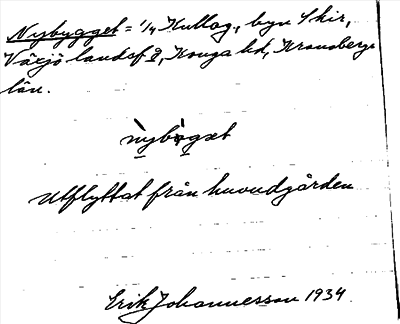 Nybygget = 1/4 Kullag., byn Skir,
Växjö landsf, Konga hd, Kronobergs
län.
nybygget
Utflyttat från huvudgården
Erik Johannesson 1934